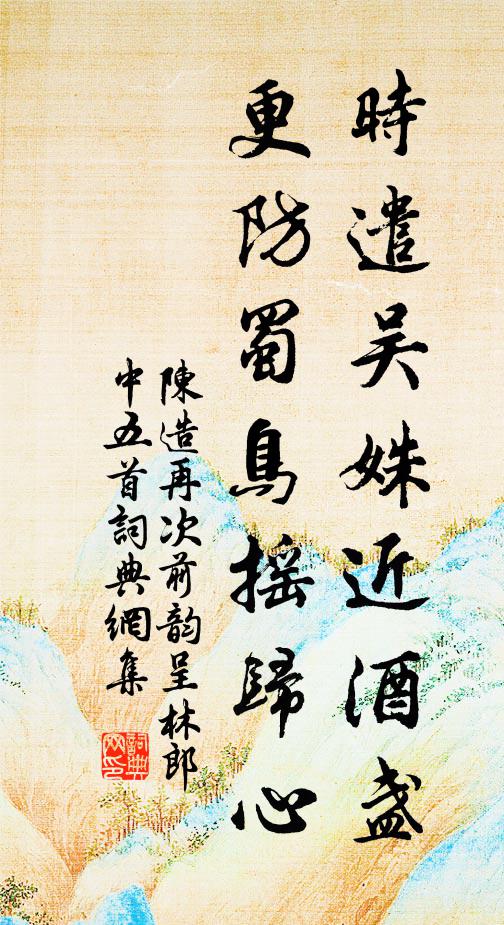 時遣吴姝近酒盏
更防蜀鳥摇歸心
陳造再次前韵呈林郎
中五首詞典網集
詞典
网印